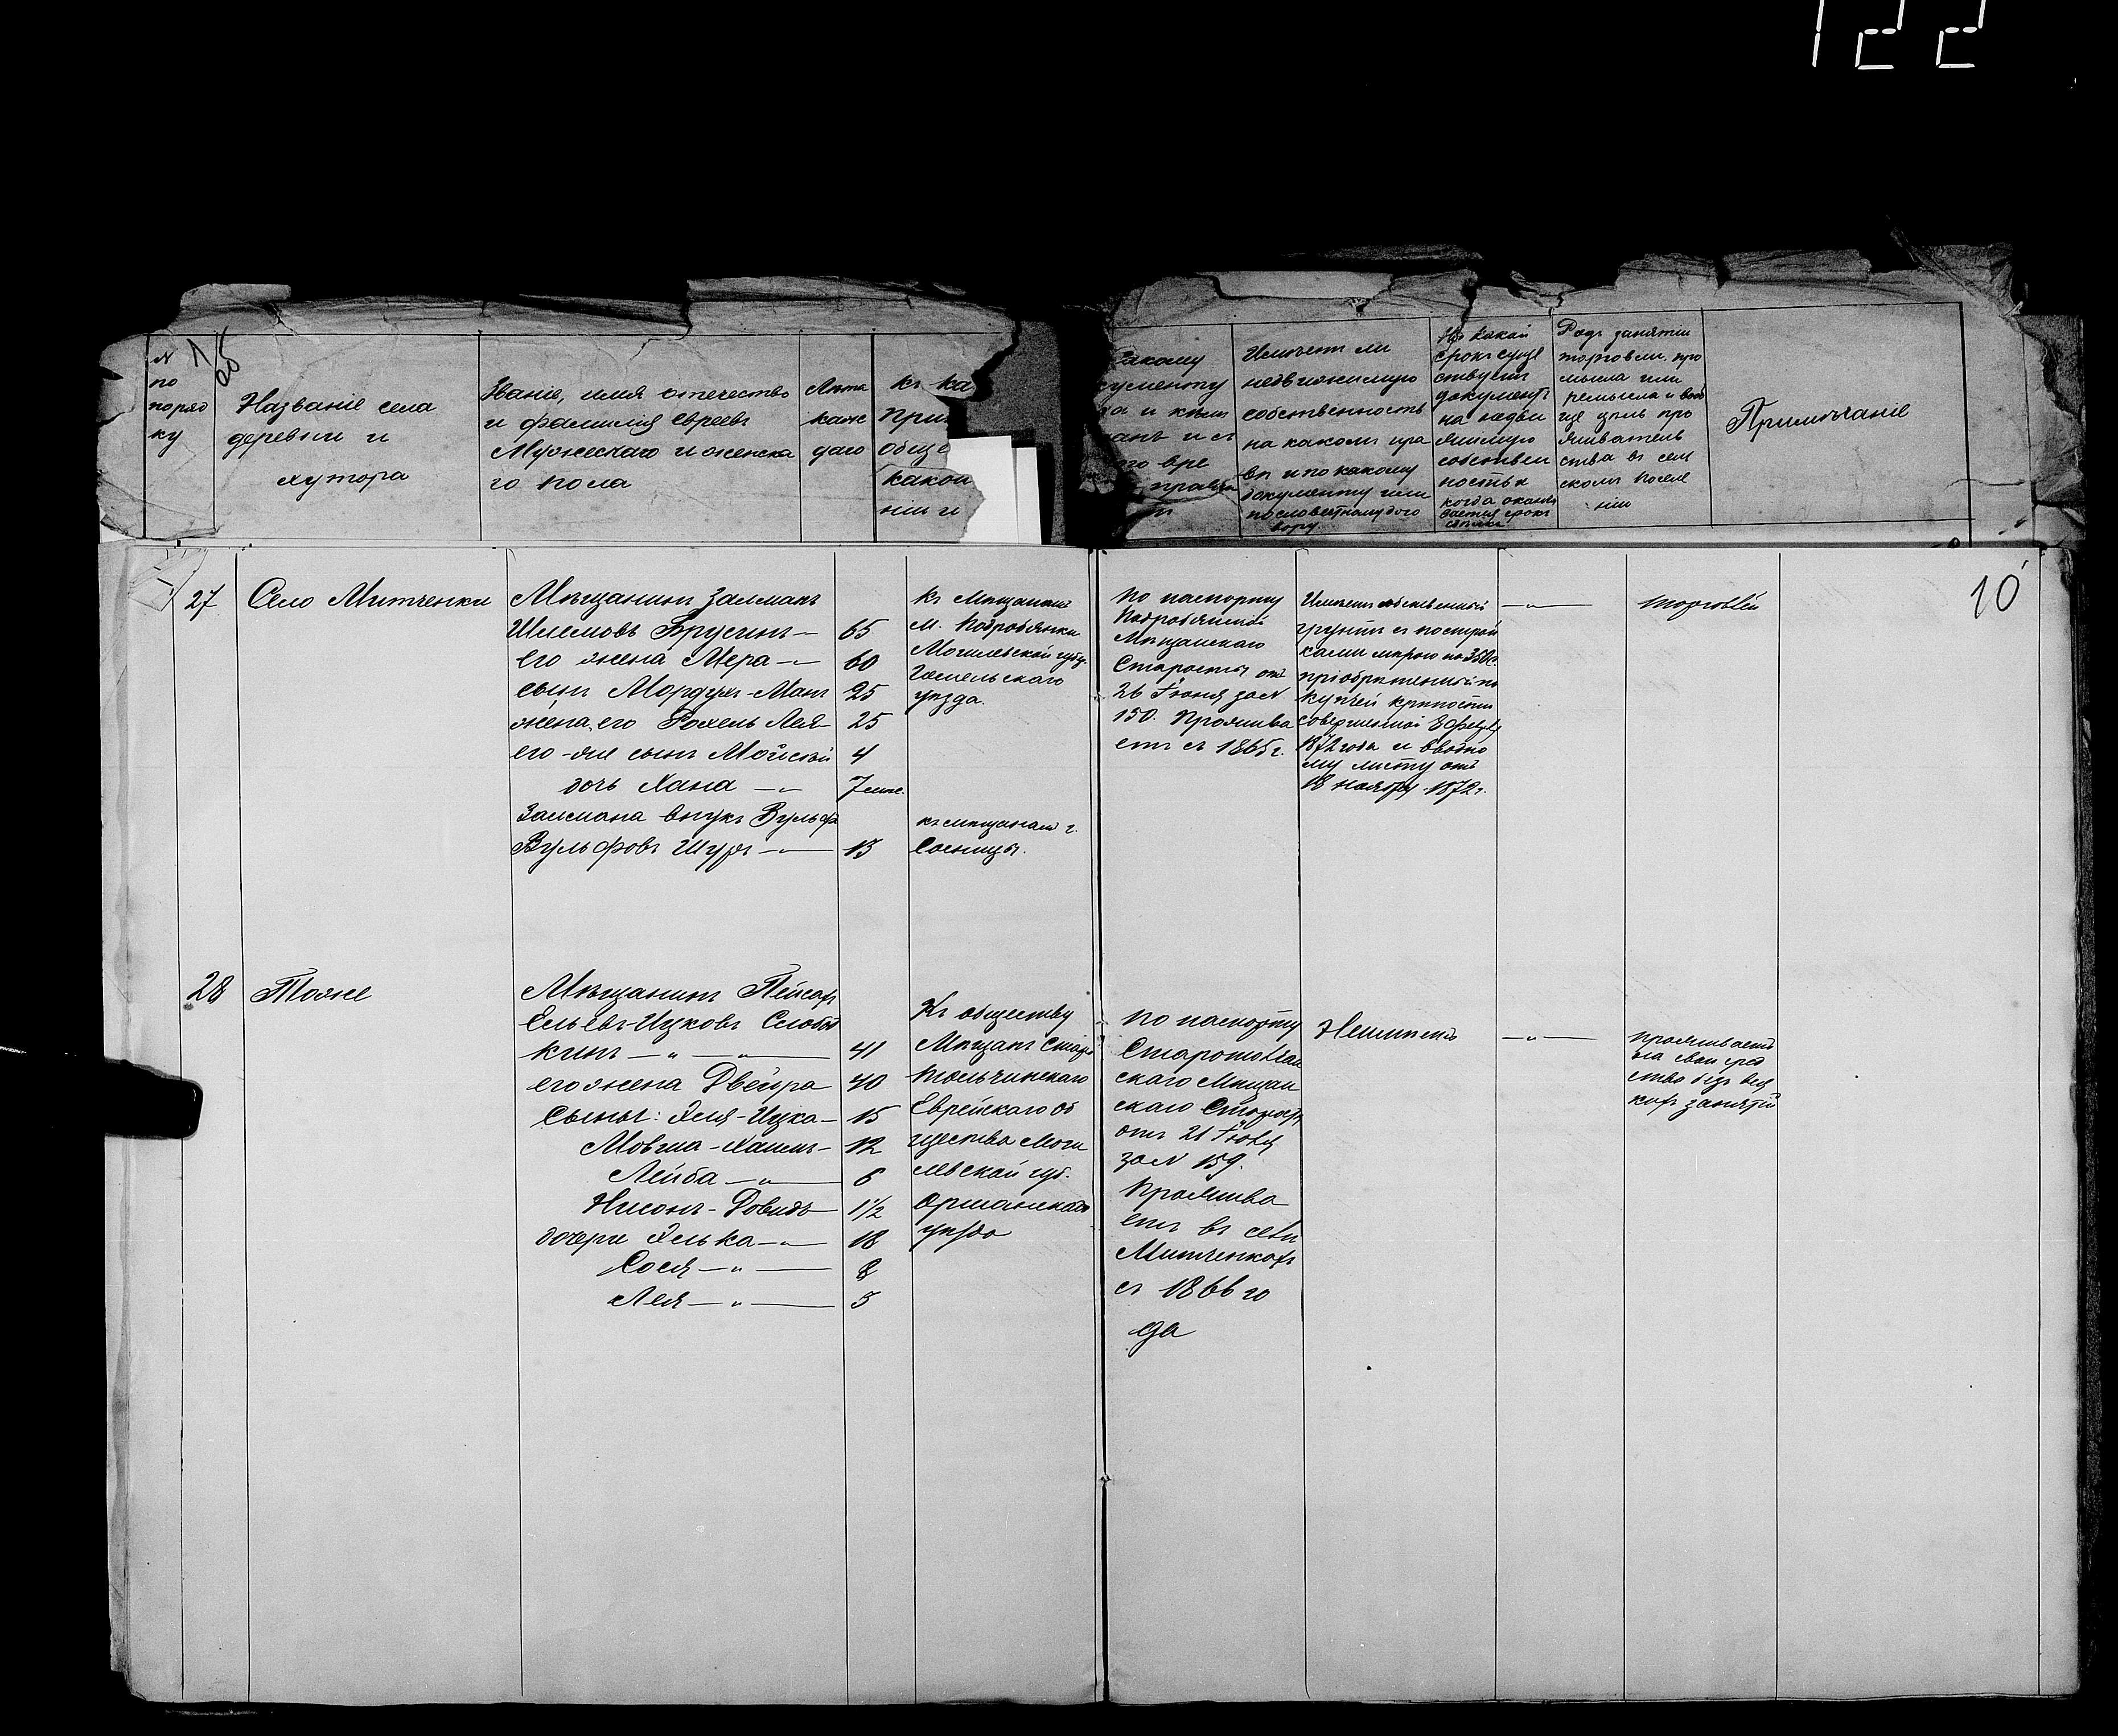 122
№
по
поряд
ку
Названіе села
деревни и
хутора
Званіе, имя отечество
и фамилія евреевъ
Мужескаго и женска
го пола
Лѣта
каж
даго
къ ка
при
обще
какой
ніи и
какому
кументу
да и кѣмъ
данъ и съ
го вре
прожива
Имѣетъ ли
недвижимую
собственность
на какомъ пра
вѣ и по какому
документу или
по словестному дого
вору
На какой
срокъ суще
ствуетъ
документъ
на недви
жимую
собствен
ность и
когда оканчи
вается срокъ
Родъ занятій
торговли, про
мысла или
ремысла и вооб
ще цѣль про
живатель
ства въ сел
скомъ поселе
ніи
Примѣчаніе
10
27
Село Митченки
Мѣщанинъ Залманъ
Шлемовъ Брусинъ — 65
его жена Мера — 60
сынъ Мордухъ-Манъ 25
жена его Рохель Лея 25
его-же сынъ Мойсей 4
дочь Хана — " 7 мѣс.
Залмана внукъ Вульфъ
Вульфовъ Шуръ — " — 13
Къ Мѣщанамъ
м. Подробянки
Могилевской губ.
Гомельскаго
уѣзда.
къ мѣщанамъ г.
Сосницы.
По паспорту
Подробянской
Мѣщанскаго
Старосты отъ
26 Іюня за №
150. Прожива
етъ съ 1865 г.
Имѣетъ собственный
грунтъ съ построй
ками мѣрою на 350 с.
пріобрѣтенный по
купчей крѣпости
совершенной 8 февр.
1872 года и вводно
му листу отъ
18 ноября 1872 г.
— " —
торговлей
28
Тоже
Мѣщанинъ Пейсахъ
Ельевъ-Ицковъ Слобод
кинъ — " — " — 41
его жена Двейра 40
Сыны: Эля-Ицка — 15
Мовша-Хаимъ — 12
Лейба — " — 6
Нисонъ-Довидъ 1 1/2
дочери Элька — " — 18
Сося — " — 8
Лея — " — 3
Къ обществу
Мѣщанъ Старо
тольчинскаго
Еврейскаго об
щества Моги
левской губ.
Оршанскаго
уѣзда
по паспорту
Старотолчин
скаго Мѣщан
скаго Старосты
отъ 21 Іюля
за № 159.
Прожива
етъ въ селѣ
Митченкахъ
съ 1866 го
да
Неимѣетъ
— " —
проживаетъ
на свои сред
ства безъ вся
кихъ занятій